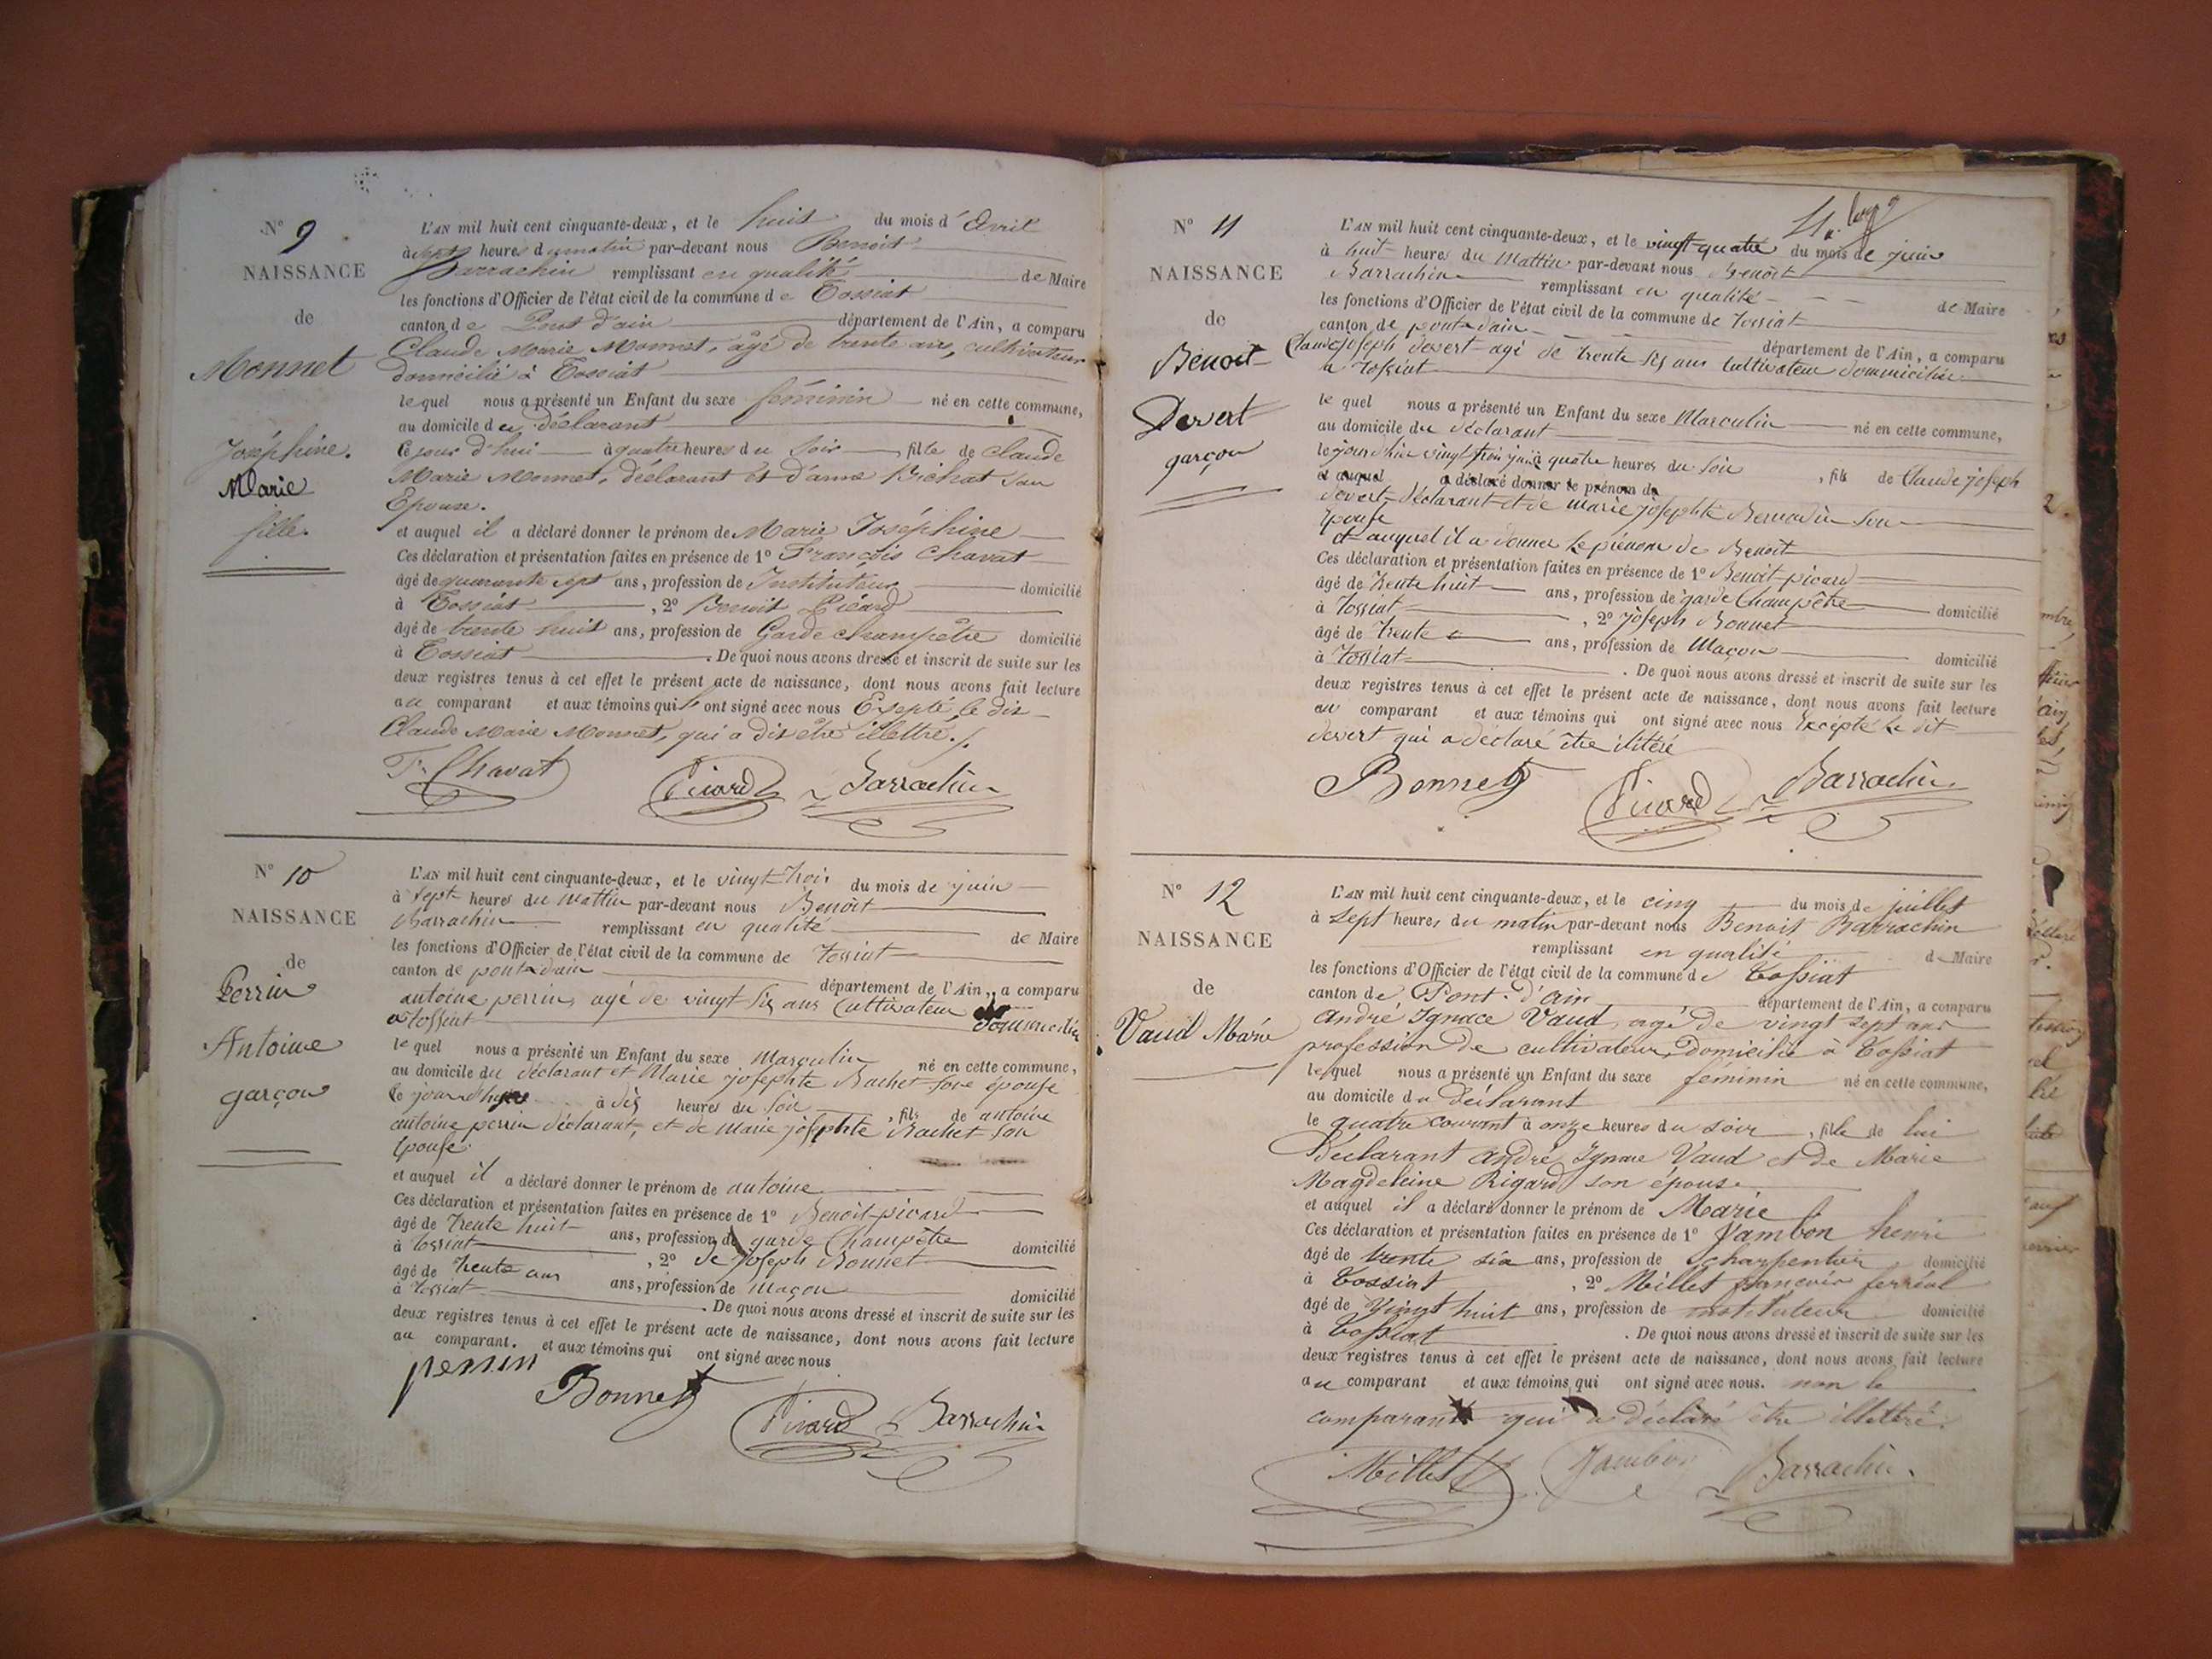 N° 9
NAISSANCE
de
Monnet
Joséphine.
Marie
fille.
L'AN mil huit cent cinquante-deux, et le huit du mois d'Avril
à sept heures du matin par-devant nous Benoit
Barrachin remplissant en qualité de Maire
les fonctions d'Officier de l'état civil de la commune de Tossiat
canton de Pont d'ain département de l'Ain, a comparu
Claude Marie Monnet, âgé de trente ans, cultivateur
domicilié à Tossiat
lequel nous a présenté un Enfant du sexe féminin né en cette commune,
au domicile du déclarant
Ce jour d'hui à quatre heures du soir, fille de Claude
Marie Monnet, déclarant et d'anne Bichat son
Epouse.
et auquel il a déclaré donner le prénom de Marie Joséphine
Ces déclaration et présentation faites en présence de 1° François Chavat
âgé de quarante sept ans, profession de Instituteur domicilié
à Tossiat, 2° Benoit Picard
âgé de trente huit ans, profession de Garde champêtre domicilié
à Tossiat. De quoi nous avons dressé et inscrit de suite sur les
deux registres tenus à cet effet le présent acte de naissance, dont nous avons fait lecture
au comparant et aux témoins qui ont signé avec nous Exepté le dit
Claude Marie Monnet, qui a dit être illettré./.
F. Chavat Picard Barrachin
N° 10
NAISSANCE
de
Perrin
Antoine
garçon
L'AN mil huit cent cinquante-deux, et le vingt trois du mois de juin
à sept heures du mattin par-devant nous Benoit
Barrachin remplissant en qualité de Maire
les fonctions d'Officier de l'état civil de la commune de tossiat
canton de pont d'ain département de l'Ain, a comparu
antoine perrin, agé de vingt six ans Cultivateur
a tossiat domicilié
lequel nous a présenté un Enfant du sexe Masculin né en cette commune,
au domicile du déclarant et Marie josephte Rachet sone épouse
le jour d'hyer à dix heures du soir, fils de antoine
antoine perrin déclarant, et de Marie josephte Rachet son
Epouse.
et auquel il a déclaré donner le prénom de antoine
Ces déclaration et présentation faites en présence de 1° Benoit picard
âgé de trente huit ans, profession de garde Champêtre domicilié
à tossiat, 2° de Joseph Bonnet
âgé de trente ans ans, profession de maçon domicilié
à tossiat. De quoi nous avons dressé et inscrit de suite sur les
deux registres tenus à cet effet le présent acte de naissance, dont nous avons fait lecture
au comparant. et aux témoins qui ont signé avec nous
perrin Bonnet Picard Barrachin
N° 11
NAISSANCE
de
Benoit
Devert
garçon
L'AN mil huit cent cinquante-deux, et le vingt-quatre du mois de juin
à huit heures du Mattin par-devant nous Benoit
Barrachin remplissant en qualité de Maire
les fonctions d'Officier de l'état civil de la commune de tossiat
canton de pont d'ain département de l'Ain, a comparu
Claude joseph devert agé de trente six ans Cultivateur domicilié
a tossiat
lequel nous a présenté un Enfant du sexe Masculin né en cette commune,
au domicile du déclarant
le jour d'hier vingt trois juin à quatre heures du soir, fils de Claude joseph
et auquel a déclaré donner le prénom de
devert déclarant et de marie josephte Bernadin son
Epouse
et auquel il a donner le prénom de Benoit
Ces déclaration et présentation faites en présence de 1° Benoit picard
âgé de trente huit ans, profession de garde Champêtre domicilié
à tossiat, 2° joseph Bonnet
âgé de trente ans, profession de Maçon domicilié
à tossiat. De quoi nous avons dressé et inscrit de suite sur les
deux registres tenus à cet effet le présent acte de naissance, dont nous avons fait lecture
au comparant et aux témoins qui ont signé avec nous Excepté le dit
devert qui a déclaré être ilitéré
Bonnet Picard Barrachin
N° 12
NAISSANCE
de
Vaud Marie
L'AN mil huit cent cinquante-deux, et le cinq du mois de juillet
à sept heures du matin par-devant nous Benoit Barrachin
remplissant en qualité de Maire
les fonctions d'Officier de l'état civil de la commune de Tossiat
canton de Pont-d'ain département de l'Ain, a comparu
andré Ignace Vaud, agé de vingt sept ans
profession de cultivateur, domicilié à Tossiat
lequel nous a présenté un Enfant du sexe féminin né en cette commune,
au domicile du déclarant
le quatre courant à onze heures du soir, fille de lui
Déclarant andré Ignace Vaud et de Marie
Magdeleine Rigard son épouse
et auquel il a déclaré donner le prénom de Marie
Ces déclaration et présentation faites en présence de 1° Jambon henri
âgé de trente six ans, profession de charpentier domicilié
à Tossiat, 2° Millet françois ferréol
âgé de vingt huit ans, profession de instituteur domicilié
à Tossiat. De quoi nous avons dressé et inscrit de suite sur les
deux registres tenus à cet effet le présent acte de naissance, dont nous avons fait lecture
au comparant et aux témoins qui ont signé avec nous. non le
comparant qui a déclaré être illettré.
Millet Jambon Barrachin